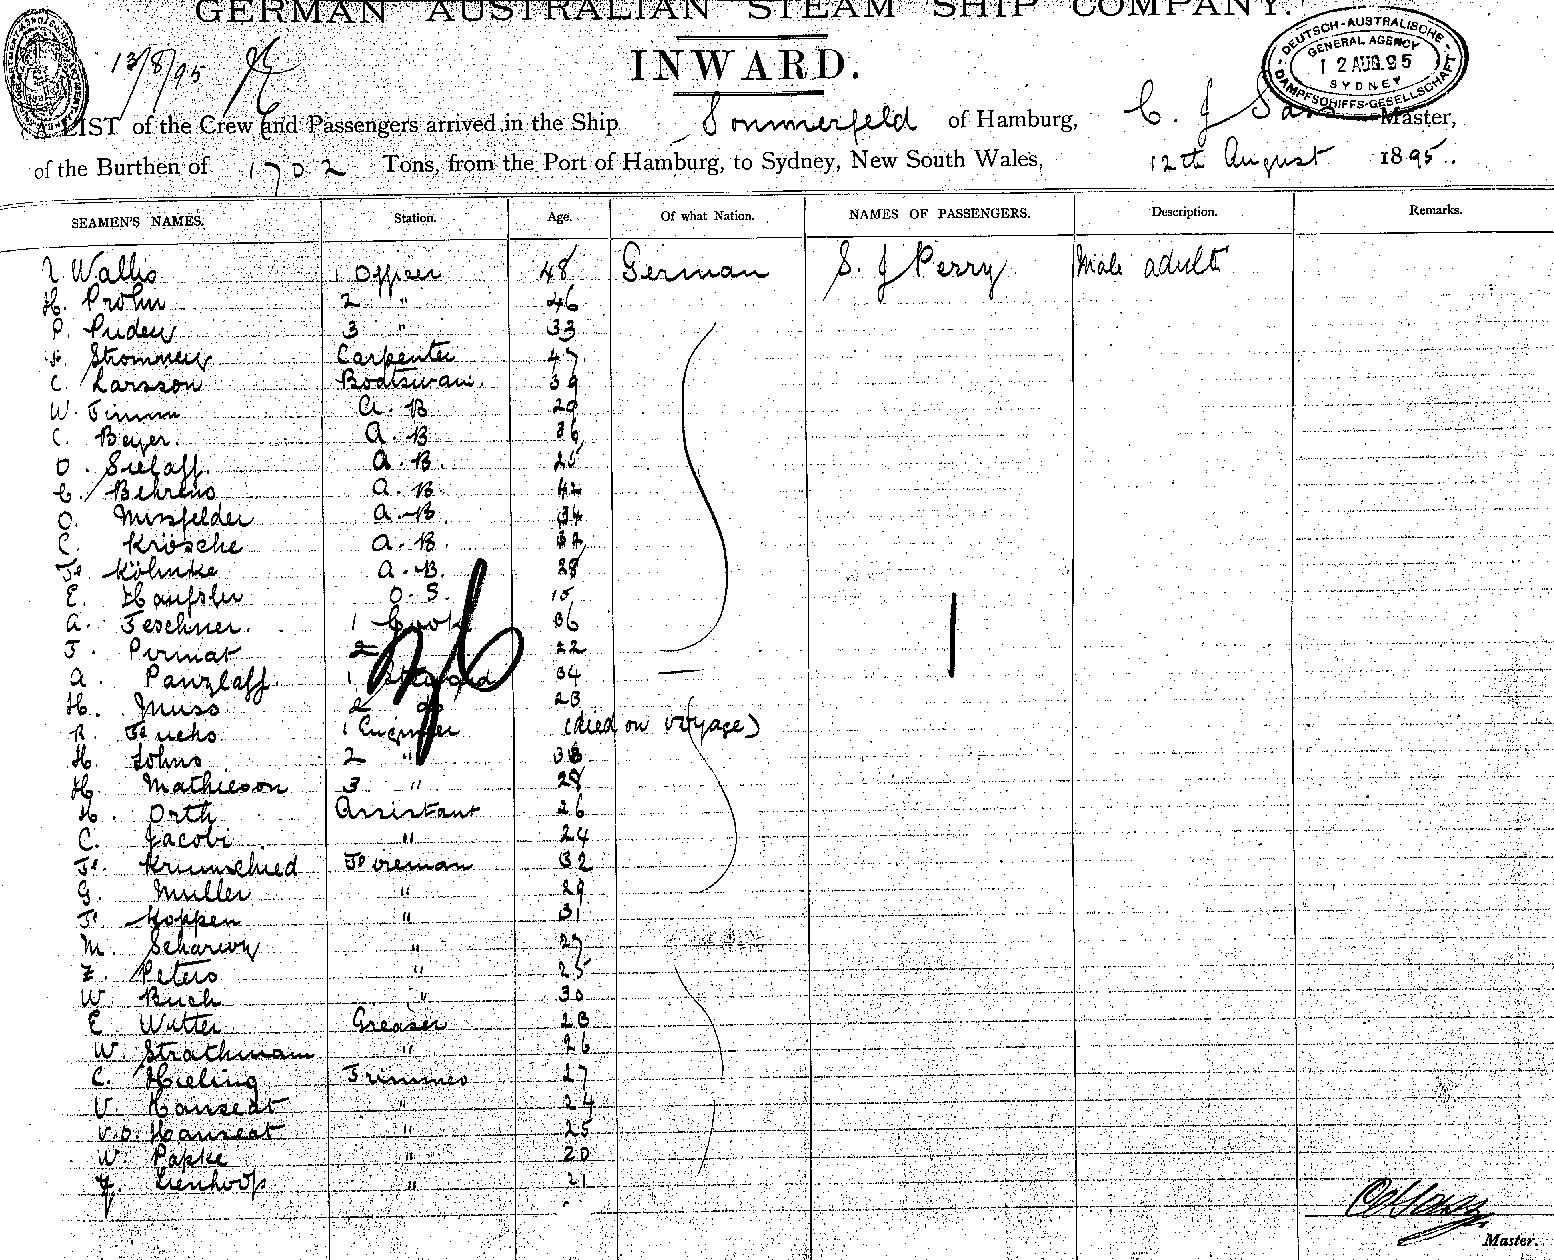 GERMAN AUSTRALIAN STEAM SHIP COMPANY.
13/8/95
INWARD.
DEUTSCH-AUSTRALISCHE DAMPFSCHIFFS-GESELLSCHAFT
GENERAL AGENCY
12 AUG.95
SYDNEY
A LIST of the Crew and Passengers arrived in the Ship Sommerfeld of Hamburg, C. J Master,
of the Burthen of 1702 Tons, from the Port of Hamburg, to Sydney, New South Wales, 12th August 1895.
SEAMEN'S NAMES. Station. Age. Of what Nation. NAMES OF PASSENGERS. Description. Remarks.
Wallis 1 Officer 48 German S. J Perry Male adult
H. Prohn 2 " 46
P. 3 " 33
Carpenter 47
C. Larsson Boatswain. 39
W. Timm A. B 29
C. Beyer. A. B 36
O. Sielaff. A. B. 25
C. Behrens A. B. 42
O. Missfelder A. B. 34
C. Krösche A. B. 32
F. Köhnke A. B. 28
E. O. S. 15
A. Teschner. 1 Cook 36
F. 2 22
A. Panzlaff. 1 Steward 34
H. 2 do 23
R. Fuchs 1 Engineer (died on voyage)
H. Johns 2 " 38
H. Mathieson 3 " 28
H. Orth Assistant 26
C. Jacobi " 24
F. Krumschied Foreman 32
G. Muller " 29
F. Hoppen " 31
M. " 27
Z. Peters " 25
W. Buch " 30
E. Witter Greaser 23
W. Strathmann " 26
C. Hieling Trimmer 27
V. Hanseat " 24
V.O. Hanseat " 25
W. Papke " 20
Lienhoop " 21
Master.